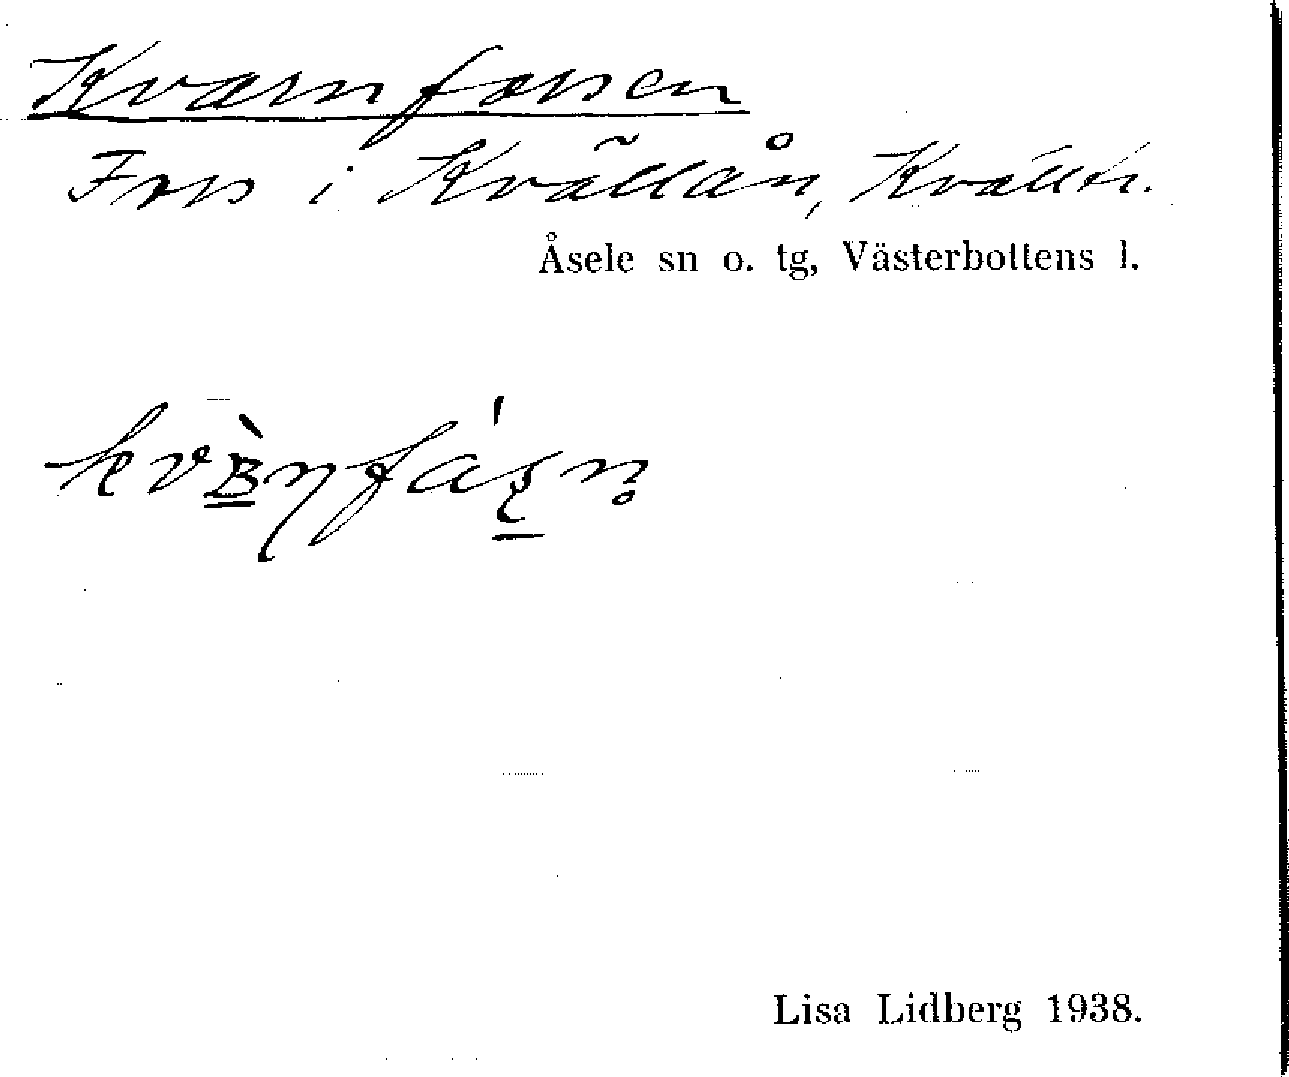 Kvarnforsen
Fors i Kvällån, Kvälltr.
Åsele sn o. tg, Västerbottens l.
Lisa Lidberg 1938.